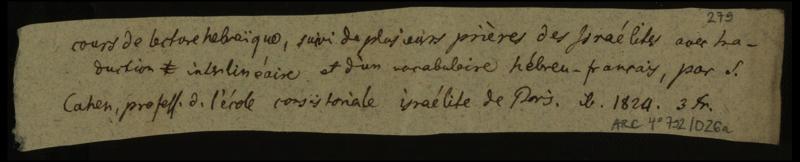 279
cours de lecture hebraïque, suivi de plusieurs prières des Israélites avec tra-
duction interlinéaire et d'un vocabulaire hébreu-français, par S.
Cahen, profess. d. l'école consistoriale israélite de Paris. ib. 1824. 3 fr.
ARC 4° 792/D26a